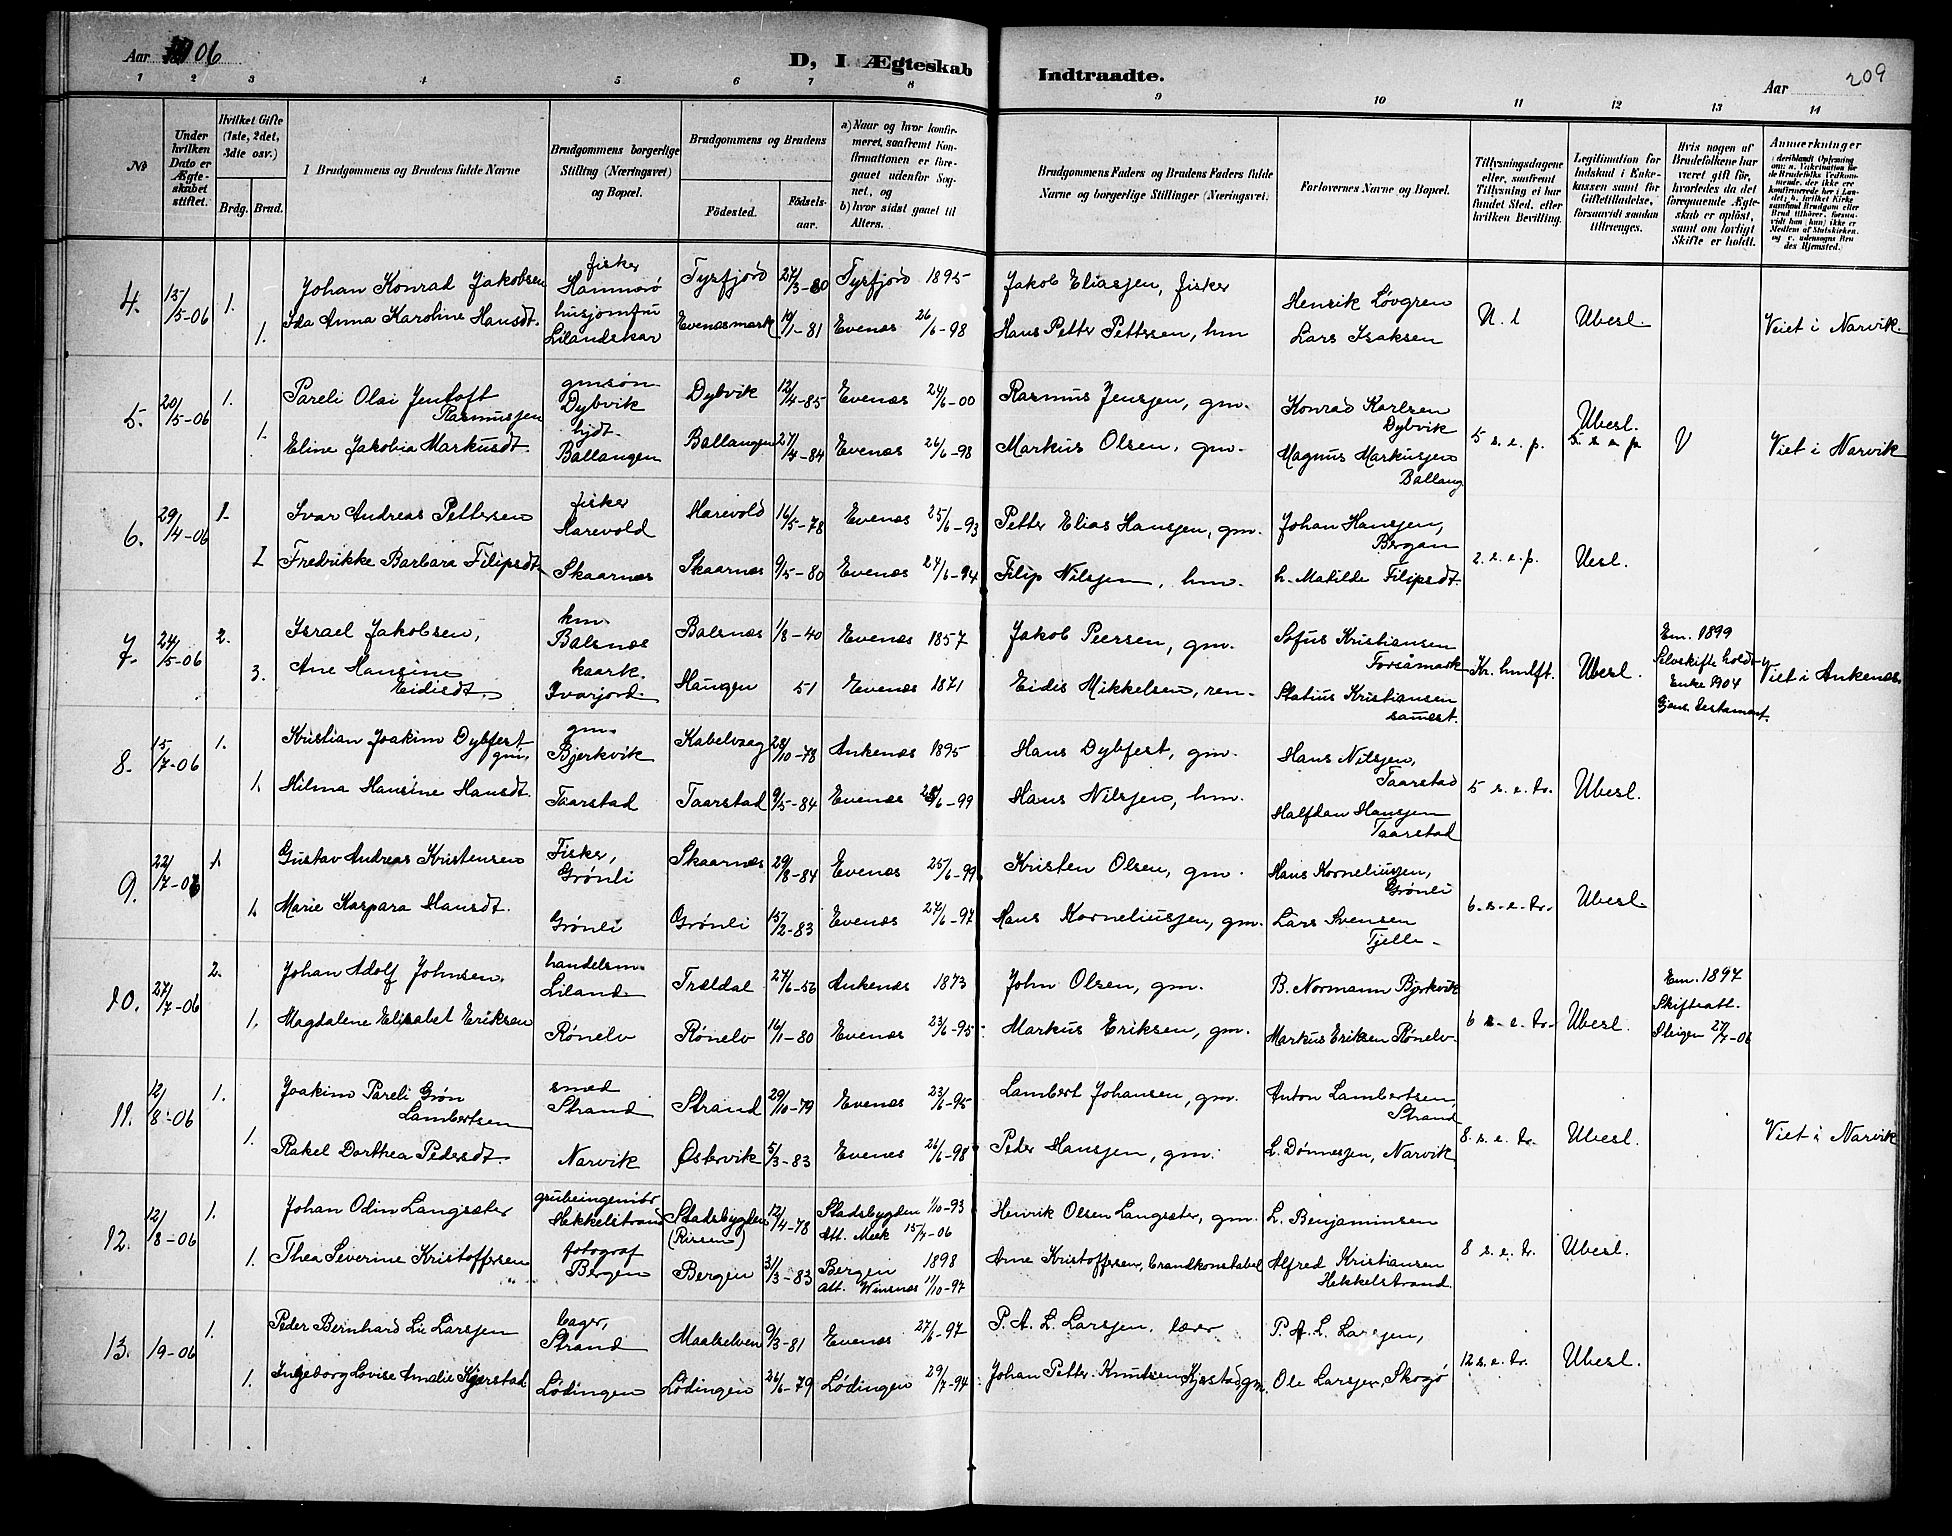 Aar 1906
D, I Ægteskab Indtraadte.
209
Aar
1 2 3 4 5 6 7 8 9 10 11 12 13 14
No
Under hvilken Dato er Ægteskabet stiftet.
Hvilket Gifte (1ste, 2det, 3die osv.)
Brdg. Brud.
I Brudgommens og Brudens fulde Navne
Brudgommens borgerlige Stilling (Næringsvei) og Bopæl.
Brudgommens og Brudens
Fødested. Fødselsaar.
a) Naar og hvor konfirmeret, saafremt Konfirmationen er foregaaet udenfor Sognet, og
b) hvor sidst gaaet til Alters.
Brudgommens Faders og Brudens Faders fulde Navne og borgerlige Stillinger (Næringsvei.
Forlovernes Navne og Bopæl.
Tillysningsdagene eller, saafremt Tillysning ei har fundet Sted, efter hvilken Bevilling.
Legitimation for Indskud i Enkekassen samt for Giftetilladelse, forsaavidt saadan tiltrænges.
Hvis nogen af Brudefolkene har været gift før, hvorledes da det foregaaende Ægteskab er opløst, samt om lovligt Skifte er holdt.
Anmærkninger
4. 15/5-06 1. Johan Konrad Jakobsen fisker Hammerø Tysfjord 27/3-80 Tysfjord 1895 Jakob Eliasjen, fisker Henrik Løvgren N. l Ubesl. Viet i Narvik.
1. Ida Anna Karoline Hansdt. husjomfru Lilandskar Evenesmark 19/1-81 Evenes 26/6-98 Hans Petter Pettersen, hm Lars Isaksen
5. 20/5-06 1. Pareli Olai Jentoft Rasmusjen gmsøn Dybvik Dybvik 12/4-85 Evenes 24/6-00 Rasmus Jensjen, gm. Konrad Karlsen Dybvik 5 s. e. p. Ubesl. 5 s e p V Viet i Narvik
1. Eline Jakobia Markusdt. hjdt. Ballangen Ballangen 27/4-84 Evenes 26/6-98 Markus Olsen, gm. Magnus Markusjen Ballang.
6. 29/4-06 1. Ivar Andreas Pettersen fisker Harevold Harevold 16/5-78 Evenes 25/6-93 Petter Elias Hansjen, gm. Johan Hansjen, Bergan 2. s. e. p. Uesl.
1 Fredrikke Barbara Filipsdt. Skaarnes Skaarnes 9/5-80 Evenes 24/6-94 Filip Nilsjen, hm. h. Matilde Filipsdt.
7. 24/5-06 2. Israel Jakobsen, km. Balsnes Balsnes 1/8-40 Evenes 1857 Jakob Peersen, gm. Sofus Kristiansen Forsåmark Kr. hmlft. Ubesl. Em. 1899 Selvskifte holdt Viet i Ankenes.
3. Ane Hansine Eidisdt. kaark. Ivarjord Haugen 51 Evenes 1871 Eidis Mikkelsen, ren- Statius Kristiansen samest. Enke 1904 Gjens. testament.
8. 15/7-06 1. Kristian Joakim Dybfest gm, gm. Bjerkvik Kabelvaag 28/10-78 Ankenes 1895 Hans Dybfest, gm. Hans Nilsjen, Taarstad 5 s. e. tr. Ubesl.
1. Hilma Hansine Hansdt. Taarstad Taarstad 9/5-84 Evenes 25/6-99 Hans Nilsjen, hm. Halfdan Hansjen Taarstad
9. 22/7-06 1. Gustav Andreas Kristensen Fisker, Grønli Skaarnes 29/8-84 Evenes 25/6-99 Kristen Olsen, gm. Hans Korneliusjen, Grønli 6. s. e. tr. Ubesl.
1. Marie Kaspara Hansdt. Grønli Grønli 15/2-83 Evenes 27/6-97 Hans Korneliusjen, gm. Lars Svensen Tjelle-
10. 27/7-06 2. Johan Adolf Johnsen. handelsm. Liland Trældal 27/6-56 Ankenes 1873 John Olsen, gm. B. Normann Bjerkvik 6 s. e. tr. Ubesl. Em. 1897 Skifteatt. Steigen 27/7-06
1. Magdalene Elisabet Eriksen Rønelv Rønelv 16/1-80 Evenes 23/6-95 Markus Eriksen, gm. Markus Eriksen Rønelv.
11. 12/8-06 1. Joakim Pareli Grøn Lambertsen smed Strand Strand 29/10-79 Evenes 23/6-95 Lambert Johansen, gm. Anton Lambertsen, Strand 8. s. e. tr. Ubesl. Viet i Narvik
1. Rakel Dorthea Pedersdt. Narvik Østervik 5/3-83 Evenes 26/6-98 Peder Hansjen, gm. L. Dønnesjen, Narvik
12. 12/8-06 1. Johan Odin Langsæter grubeingeniør Hekkelstrand Stadsbygden (Rissen) 12/4-78 Stadsbygden 1/10-93 Att. Meek 15/7-06 Henrik Olsen Langsæter, gm. L. Benjaminsen 8 s. e. tr. Ubesl.
1. Thea Severine Kristoffersen fotograf Bergen Bergen 31/3-83 Bergen 1898 att. Winsnes 11/10-97 Arne Kristoffersen, brandkonstabel Alfred Kristiansen Hekkelstrand.
13. 19-06 1. Peder Bernhard Lie Larsjen bager, Strand Maakelven 9/3-81 Evenes 27/6-97 P. A. L. Larsjen, lærer P. A. L. Larsjen, 12 s. e. tr. Ubesl.
1. Ingeborg Lovise Amalie Kjerstad Lødingen Lødingen 26/6-79 Lødingen 29/7-94 Johan Petter Knutsen Kjerstad, gm. Ole Larsjen, Skogø